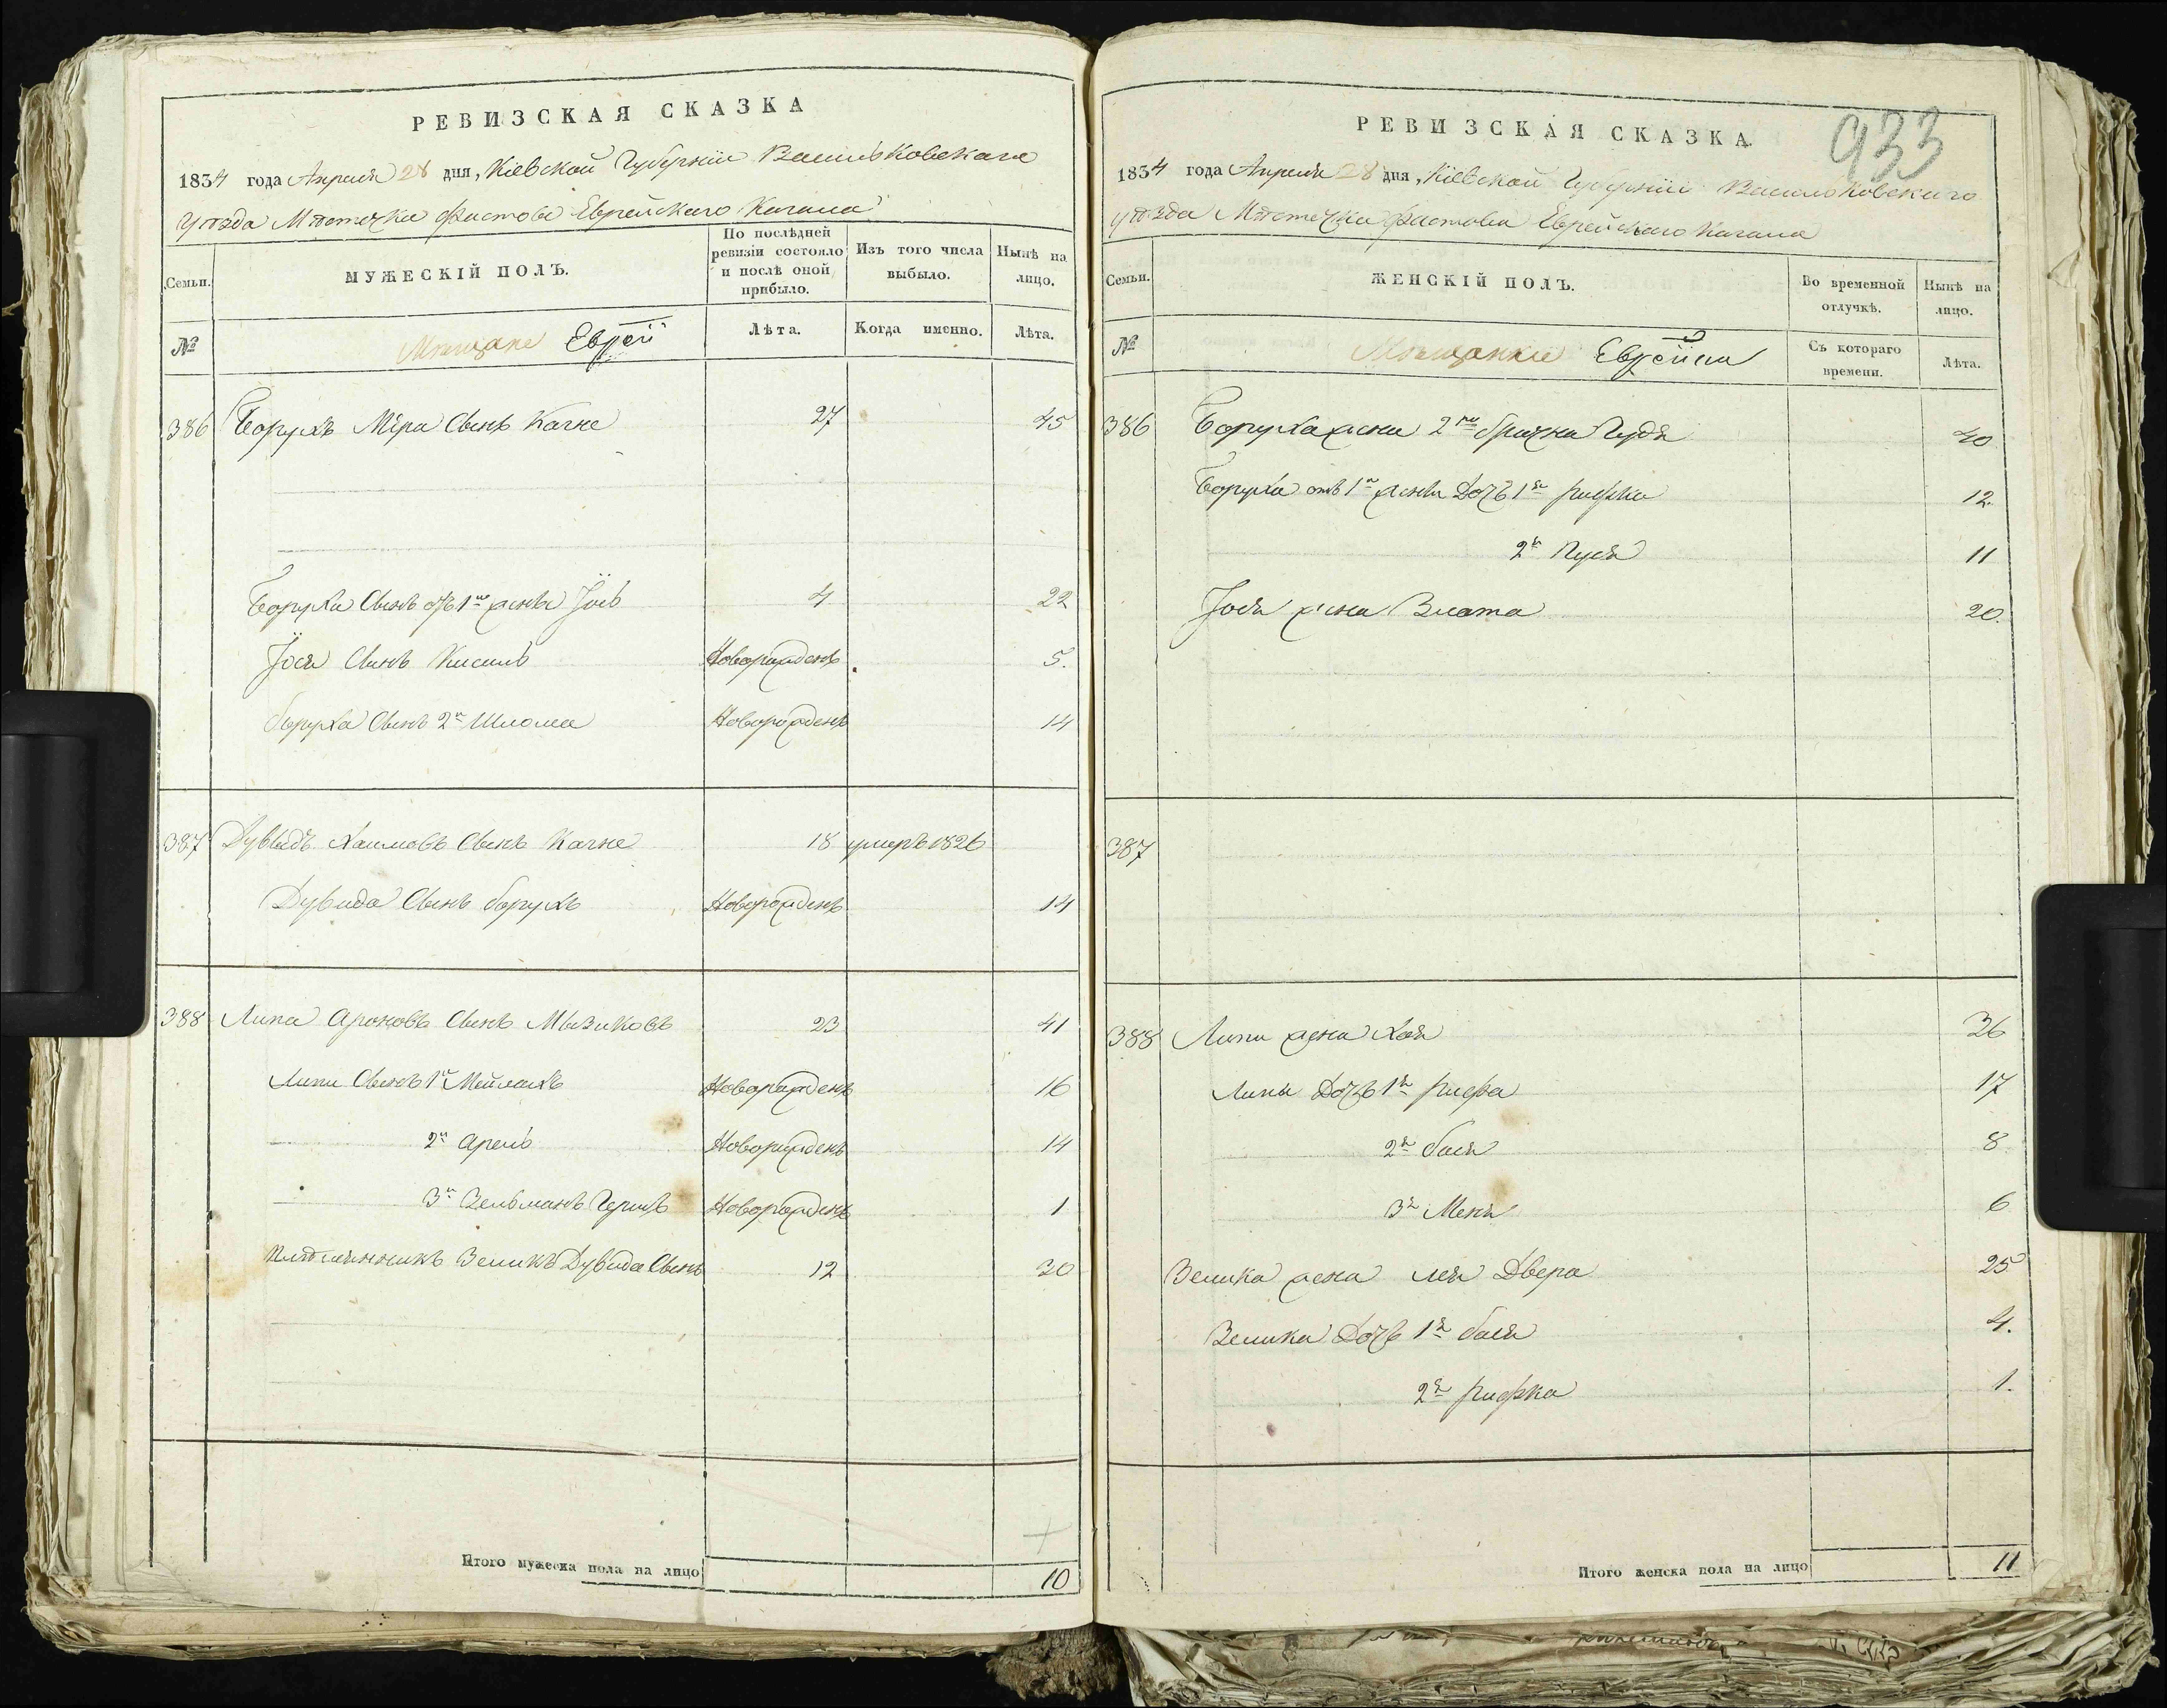 РЕВИЗСКАЯ СКАЗКА
1834 года Апреля 28 дня, Кіевской Губерніи Васильковскаго
уѣзда Мѣстечка Фастова Еврейскаго Кагала
Семьи.
МУЖЕСКІЙ ПОЛЪ.
По послѣдней ревизіи состояло и послѣ оной прибыло.
Изъ того числа выбыло.
Нынѣ на лицо.
№
Мѣщане Евреи
Лѣта.
Когда именно.
Лѣта.
386 Борухъ Мера Сынъ Кагне 27 45
Боруха Сынъ отъ 1й жены Іось 4 22
Іося Сынъ Кисиль Новорожденъ 5.
Боруха Сынъ 2й Шлома Новорожденъ 14
387 Дувыдъ Хаимовъ Сынъ Кагне 18 умеръ 1826
Дувида Сынъ Борухъ Новорожденъ 14
388 Липа Ароновъ Сынъ Мызиковъ 23 41
Липи Сынъ 1й Мейлахъ Новорожденъ 16
2й Арель Новорожденъ 14
3й Зельманъ Гершъ Новорожденъ 1
Племянникъ Зеликъ Дувида Сынъ 12 30
Итого мужеска пола на лицо 10
РЕВИЗСКАЯ СКАЗКА.
933
1834 года Апреля 28 дня, Кіевской Губерніи Васильковскаго
уѣзда Мѣстечка Фастова Еврейскаго Кагала
Семьи.
ЖЕНСКІЙ ПОЛЪ.
Во временной отлучкѣ.
Нынѣ на лицо.
№
Мѣщанки Еврейки
Съ котораго времени.
Лѣта.
386 Боруха жена 2го брачна Гудя 40
Боруха отъ 1й жены Дочь 1я Рифка 12.
2я Пуся 11
Іося жена Злата 20.
387
388 Липи жена Хая 36
Липы Дочь 1я Рифа 17
2я Бася 8
3я Меня 6
Зелика жена Лея Двера 25
Зелика Дочь 1я Бася 4.
2я Рифка 1.
Итого женска пола на лицо 11